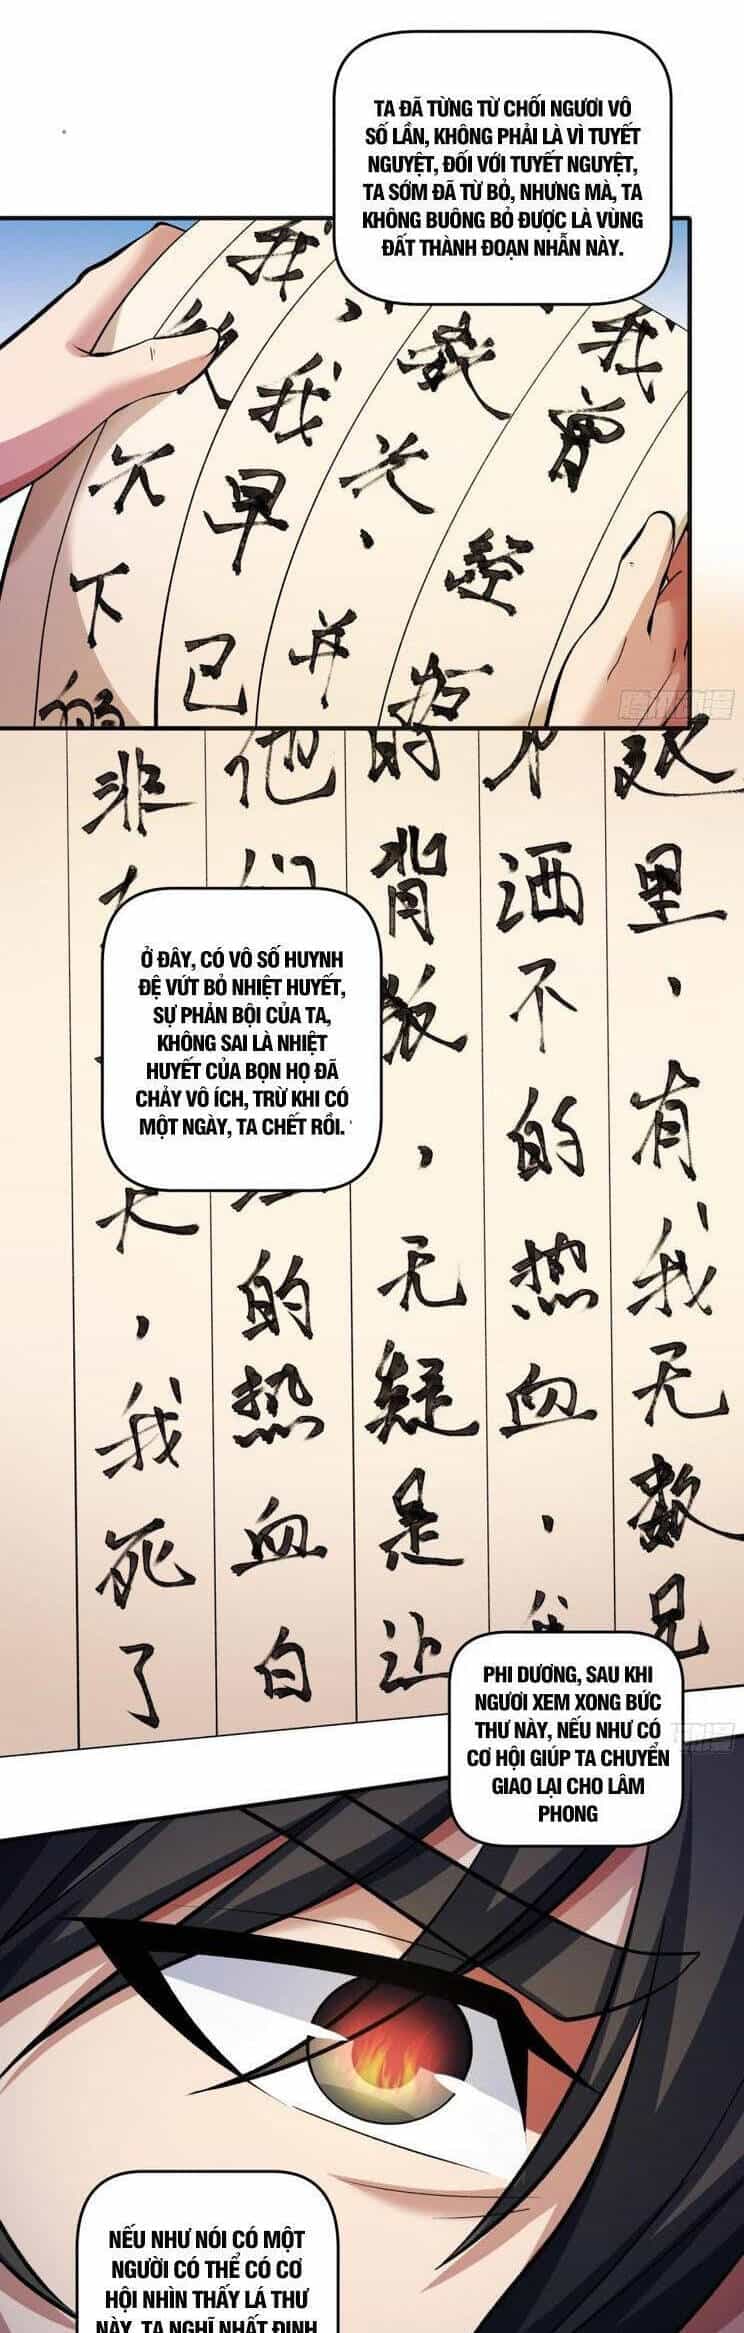 TA ĐÃ TỪNG TỪ CHỐI NGƯƠI VÔ
SỐ LẦN, KHÔNG PHẢI LÀ VÌ TUYẾT
NGUYỆT, ĐỐI VỚI TUYẾT NGUYỆT,
TA SỚM ĐÃ TỪ BỎ, NHƯNG MÀ, TA
KHÔNG BUÔNG BỎ ĐƯỢC LÀ VÙNG
ĐẤT THÀNH ĐOẠN NHẪN NÀY.
我曾经
我
我早已
不下的
我
并
里，有我无数兄
不洒不的热血，我
的背叛，无疑是让
他们
的热血白
非
天，我死了
Ở ĐÂY, CÓ VÔ SỐ HUYNH
ĐỆ VỨT BỎ NHIỆT HUYẾT,
SỰ PHẢN BỘI CỦA TA,
KHÔNG SAI LÀ NHIỆT
HUYẾT CỦA BỌN HỌ ĐÃ
CHẢY VÔ ÍCH, TRỪ KHI CÓ
MỘT NGÀY, TA CHẾT RỒI.
PHI DƯƠNG, SAU KHI
NGƯƠI XEM XONG BỨC
THƯ NÀY, NẾU NHƯ CÓ
CƠ HỘI GIÚP TA CHUYỂN
GIAO LẠI CHO LÂM
PHONG
NẾU NHƯ NÓI CÓ MỘT
NGƯỜI CÓ THỂ CÓ CƠ
HỘI NHÌN THẤY LÁ THƯ
NÀY, TA NGHĨ NHẤT ĐỊNH